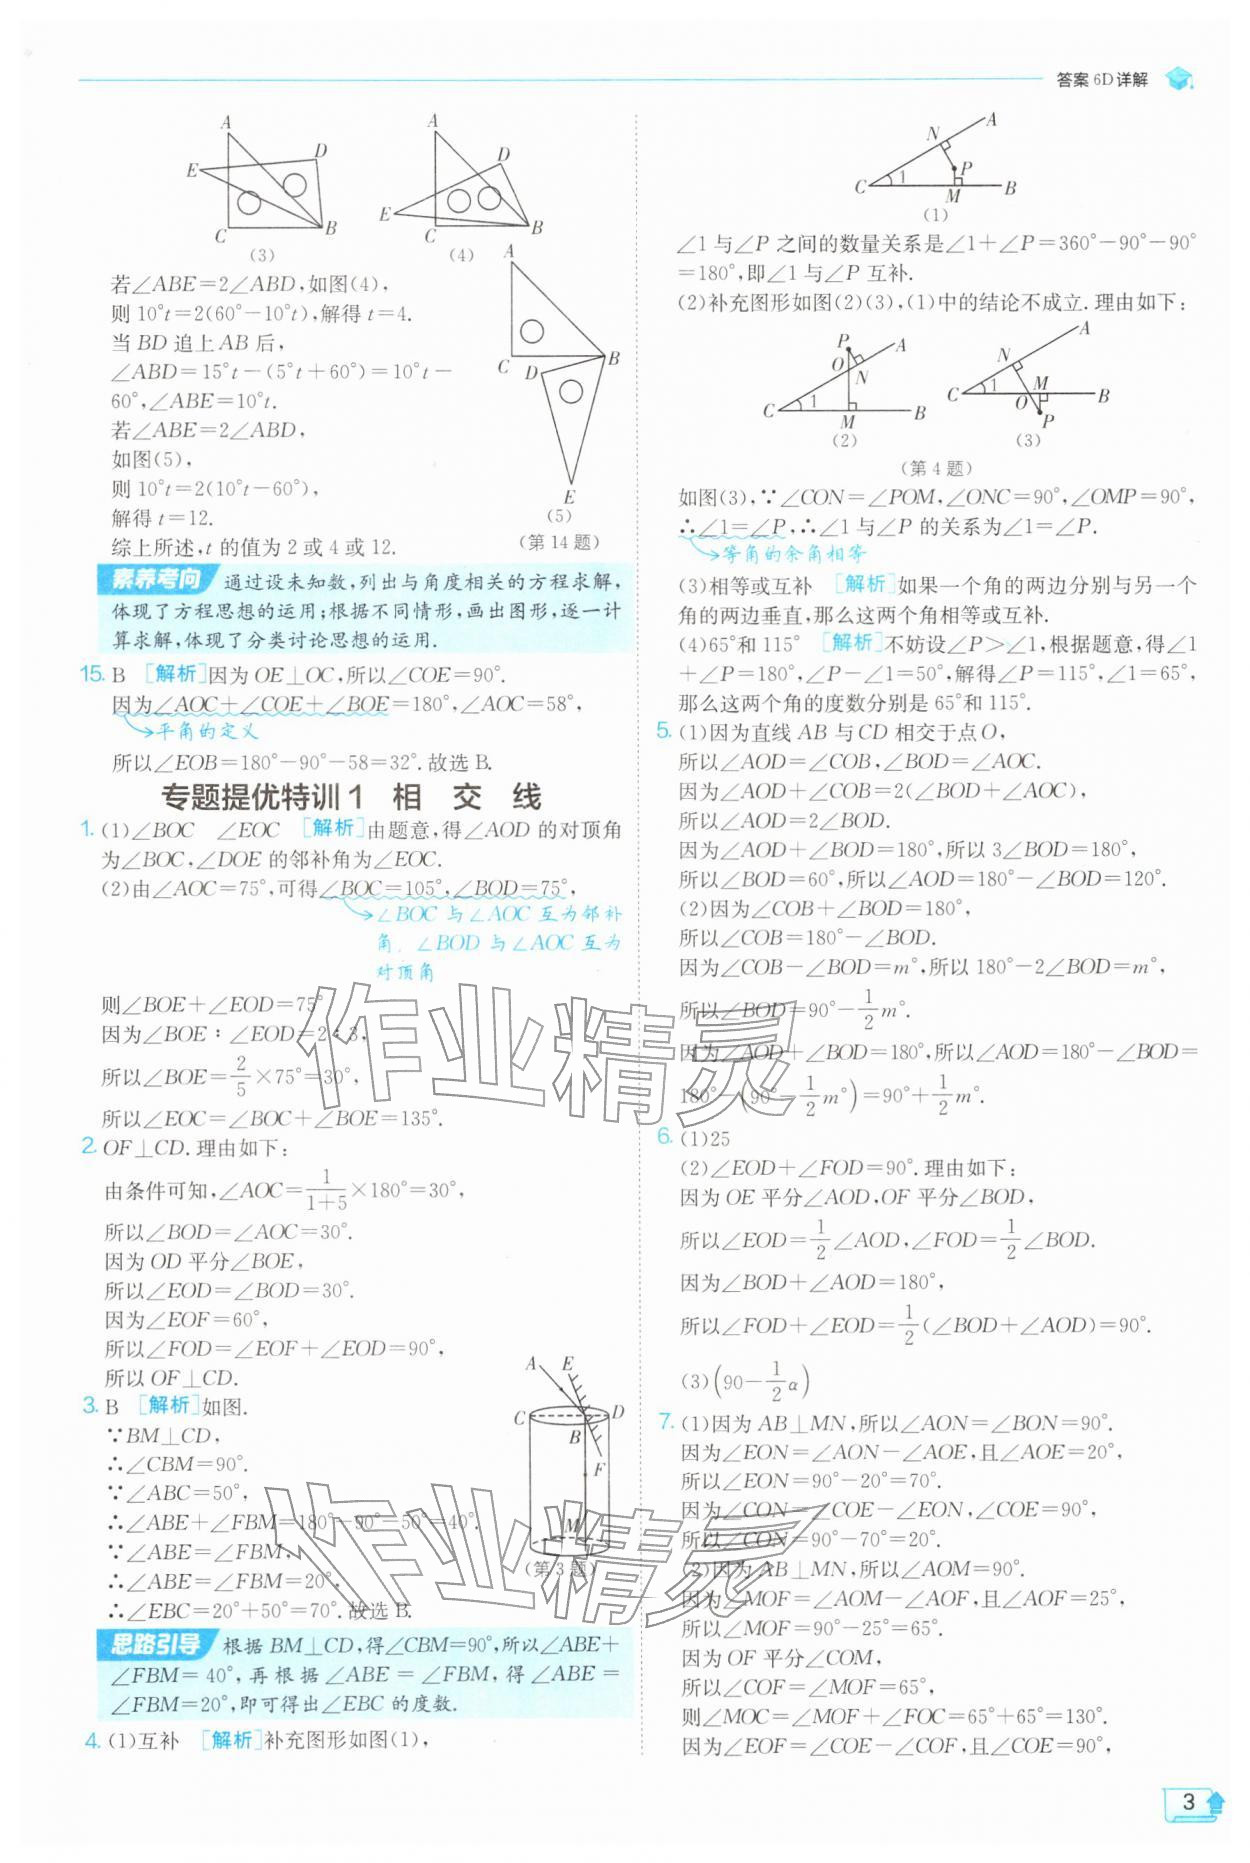 答案 6D 详解
A
D
E
C
B
(3)
A
D
E
C
B
(4)
若∠ABE=2∠ABD,如图(4),
则 10°t=2(60°-10°t),解得 t=4.
当 BD 追上 AB 后,
∠ABD=15°t-(5°t+60°)=10°t-
60°,∠ABE=10°t.
若∠ABE=2∠ABD,
如图(5),
则 10°t=2(10°t-60°),
解得 t=12.
综上所述,t 的值为 2 或 4 或 12.
A
C
D
B
E
(5)
(第 14 题)
素养考向 通过设未知数,列出与角度相关的方程求解,
体现了方程思想的运用;根据不同情形,画出图形,逐一计
算求解,体现了分类讨论思想的运用.
15. B [解析]因为 OE⊥OC,所以∠COE=90°.
因为∠AOC+∠COE+∠BOE=180°,∠AOC=58°,
平角的定义
所以∠EOB=180°-90°-58=32°.故选 B.
专题提优特训 1 相 交 线
1. (1)∠BOC ∠EOC [解析]由题意,得∠AOD 的对顶角
为∠BOC,∠DOE 的邻补角为∠EOC.
(2)由∠AOC=75°,可得∠BOC=105°,∠BOD=75°,
∠BOC 与∠AOC 互为邻补
角,∠BOD 与∠AOC 互为
对顶角
则∠BOE+∠EOD=75°
因为∠BOE∶∠EOD=2∶3,
所以∠BOE=2/5×75°=30°,
所以∠EOC=∠BOC+∠BOE=135°.
2. OF⊥CD.理由如下:
由条件可知,∠AOC=1/(1+5)×180°=30°,
所以∠BOD=∠AOC=30°.
因为 OD 平分∠BOE,
所以∠EOD=∠BOD=30°.
因为∠EOF=60°,
所以∠FOD=∠EOF+∠EOD=90°,
所以 OF⊥CD.
3. B [解析]如图.
∵BM⊥CD,
∴∠CBM=90°.
∵∠ABC=50°,
∴∠ABE+∠FBM=180°-90°-50°=40°.
∵∠ABE=∠FBM,
∴∠ABE=∠FBM=20°,
∴∠EBC=20°+50°=70°.故选 B.
A
E
C
D
B
F
M
(第 3 题)
思路引导 根据 BM⊥CD,得∠CBM=90°,所以∠ABE+
∠FBM=40°,再根据∠ABE=∠FBM,得∠ABE=
∠FBM=20°,即可得出∠EBC 的度数.
4. (1)互补 [解析]补充图形如图(1),
A
N
P
C
1
M
B
(1)
∠1 与∠P 之间的数量关系是∠1+∠P=360°-90°-90°
=180°,即∠1 与∠P 互补.
(2)补充图形如图(2)(3),(1)中的结论不成立.理由如下:
P
A
O
N
C
1
M
B
(2)
A
N
M
C
1
O
B
P
(3)
(第 4 题)
如图(3),∵∠CON=∠POM,∠ONC=90°,∠OMP=90°,
∴∠1=∠P,∴∠1 与∠P 的关系为∠1=∠P.
等角的余角相等
(3)相等或互补 [解析]如果一个角的两边分别与另一个
角的两边垂直,那么这两个角相等或互补.
(4)65°和 115° [解析]不妨设∠P>∠1,根据题意,得∠1
+∠P=180°,∠P-∠1=50°,解得∠P=115°,∠1=65°,
那么这两个角的度数分别是 65°和 115°.
5. (1)因为直线 AB 与 CD 相交于点 O,
所以∠AOD=∠COB,∠BOD=∠AOC.
因为∠AOD+∠COB=2(∠BOD+∠AOC),
所以∠AOD=2∠BOD.
因为∠AOD+∠BOD=180°,所以 3∠BOD=180°,
所以∠BOD=60°,所以∠AOD=180°-∠BOD=120°.
(2)因为∠COB+∠BOD=180°,
所以∠COB=180°-∠BOD.
因为∠COB-∠BOD=m°,所以 180°-2∠BOD=m°,
所以∠BOD=90°-1/2m°.
因为∠AOD+∠BOD=180°,所以∠AOD=180°-∠BOD=
180°-(90°-1/2m°)=90°+1/2m°.
6. (1)25
(2)∠EOD+∠FOD=90°.理由如下:
因为 OE 平分∠AOD,OF 平分∠BOD,
所以∠EOD=1/2∠AOD,∠FOD=1/2∠BOD.
因为∠BOD+∠AOD=180°,
所以∠FOD+∠EOD=1/2(∠BOD+∠AOD)=90°.
(3)(90-1/2α)
7. (1)因为 AB⊥MN,所以∠AON=∠BON=90°.
因为∠EON=∠AON-∠AOE,且∠AOE=20°,
所以∠EON=90°-20°=70°.
因为∠CON=∠COE-∠EON,∠COE=90°,
所以∠CON=90°-70°=20°.
(2)因为 AB⊥MN,所以∠AOM=90°.
因为∠MOF=∠AOM-∠AOF,且∠AOF=25°,
所以∠MOF=90°-25°=65°.
因为 OF 平分∠COM,
所以∠COF=∠MOF=65°,
则∠MOC=∠MOF+∠FOC=65°+65°=130°.
因为∠EOF=∠COE-∠COF,且∠COE=90°,
3
作业精灵
作业精灵